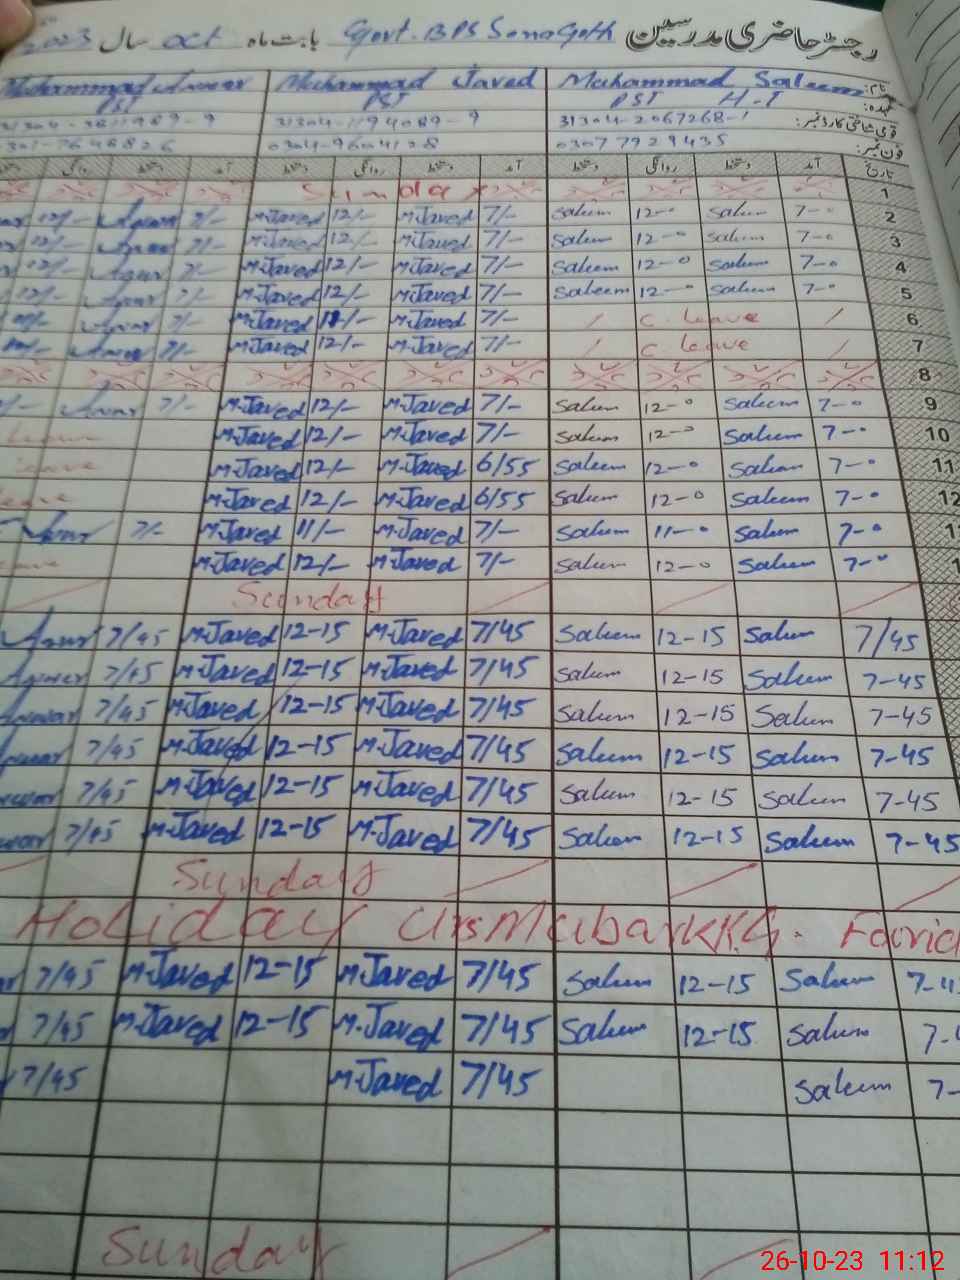 رجسٹر حاضری مدرسین Govt. BPS Sona Goth بابت ماہ oct سال 2023
نام: Muhammad Saleem Muhammad Javed Muhammad Anwar
عہدہ: PST H-T PST PST
قومی شناختی کارڈ نمبر: 31304-2067268-1 31304-1194089-9
فون نمبر: 03077929435 0304-9604128
تاریخ آمد دستخط روانگی دستخط آمد دستخط روانگی دستخط آمد دستخط روانگی
1 Sunday
2 7-0 Saleem 12-0 Saleem 7/- M.Javed 12/- M.Javed 7/- Anwar 12/-
3 7-0 Saleem 12-0 Saleem 7/- M.Javed 12/- M.Javed 7/- Anwar 12/-
4 7-0 Saleem 12-0 Saleem 7/- M.Javed 12/- M.Javed 7/- Anwar 12/-
5 7-0 Saleem 12-0 Saleem 7/- M.Javed 12/- M.Javed 7/- Anwar 12/-
6 / C. Leave / 7/- M.Javed M.Javed 7/- Anwar
7 / C. Leave / 7/- M.Javed 12/- M.Javed 7/- Anwar
8
9 7-0 Saleem 12-0 Saleem 7/- M.Javed 12/- M.Javed 7/- Anwar
10 7-0 Saleem 12-0 Saleem 7/- M.Javed 12/- M.Javed Leave
11 7-0 Saleem 12-0 Saleem 6/55 M.Javed 12/- M.Javed Leave
12 7-0 Saleem 12-0 Saleem 6/55 M.Javed 12/- M.Javed Leave
7-0 Saleem 11-0 Saleem 7/- M.Javed 11/- M.Javed 7/- Anwar
7-0 Saleem 12-0 Saleem 7/- M.Javed 12/- M.Javed Leave
Sunday
7/45 Saleem 12-15 Saleem 7/45 M.Javed 12-15 M.Javed 7/45 Anwar
7-45 Saleem 12-15 Saleem 7/45 M.Javed 12-15 M.Javed 7/45 Anwar
7-45 Saleem 12-15 Saleem 7/45 M.Javed 12-15 M.Javed 7/45 Anwar
7-45 Saleem 12-15 Saleem 7/45 M.Javed 12-15 M.Javed 7/45 Anwar
7-45 Saleem 12-15 Saleem 7/45 M.Javed 12-15 M.Javed 7/45 Anwar
7-45 Saleem 12-15 Saleem 7/45 M.Javed 12-15 M.Javed 7/45 Anwar
Sunday
Holiday Urs Mubark K.G. Farid
Saleem 12-15 Saleem 7/45 M.Javed 12-15 M.Javed 7/45
Saleem 12-15 Saleem 7/45 M.Javed 12-15 M.Javed 7/45
Saleem 7/45 M.Javed 7/45
Sunday
26-10-23 11:12